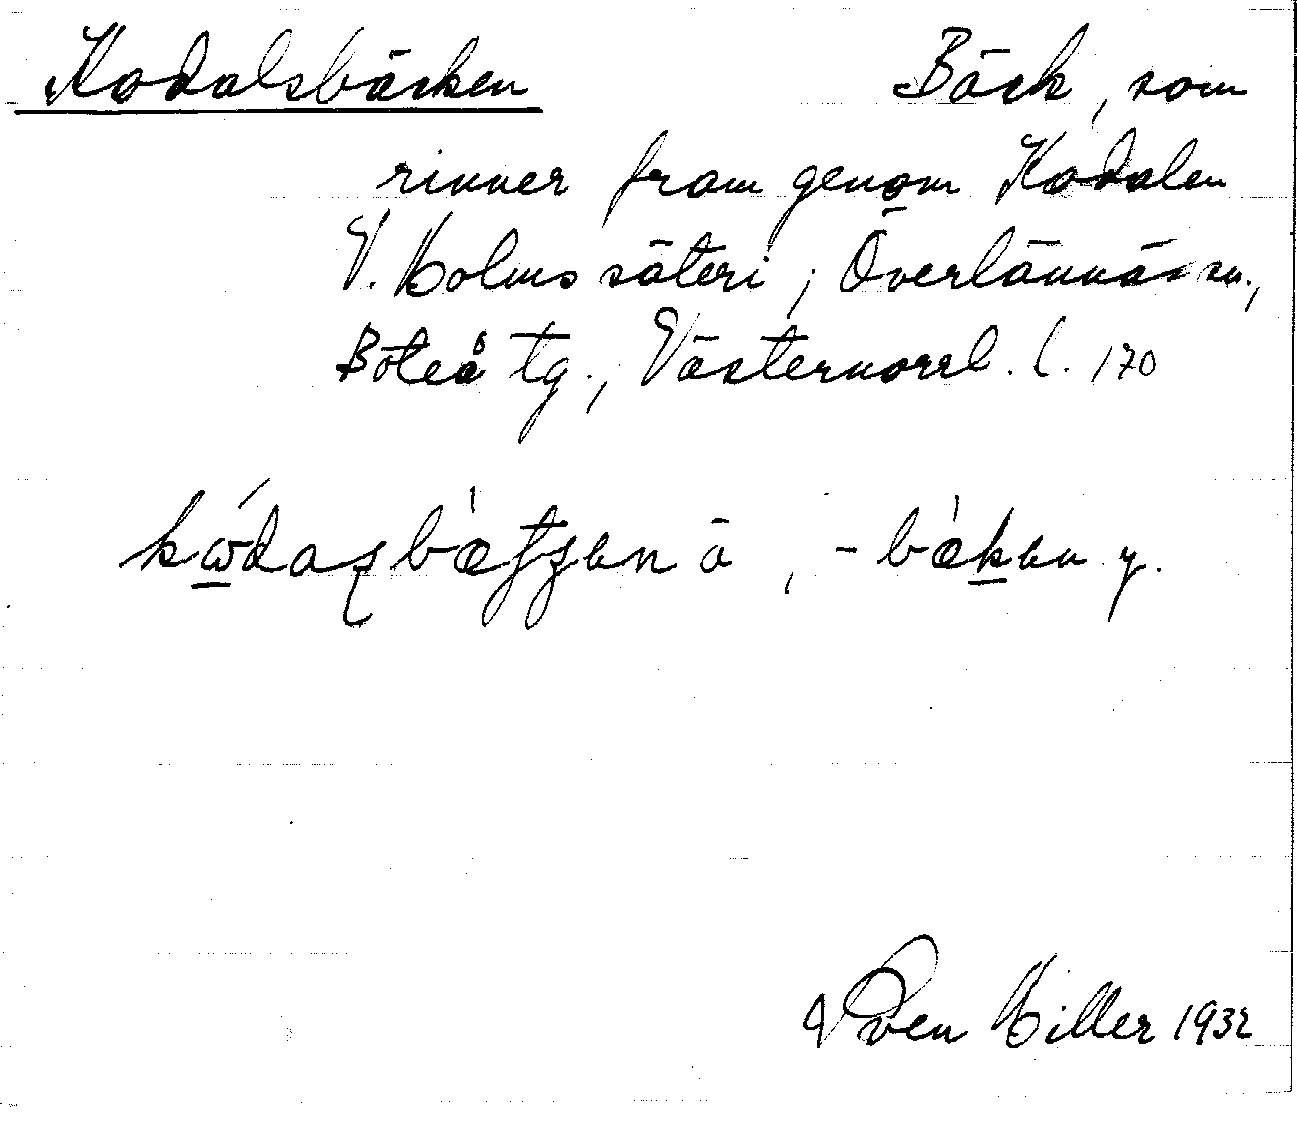 Kodalsbäcken Bäck, som
rinner fram genom Kodalen
V. Holms säteri, Överlännäs sn.,
Boteå tg., Västernorrl. l. 170
ä, - y.
Sven Hiller 1932